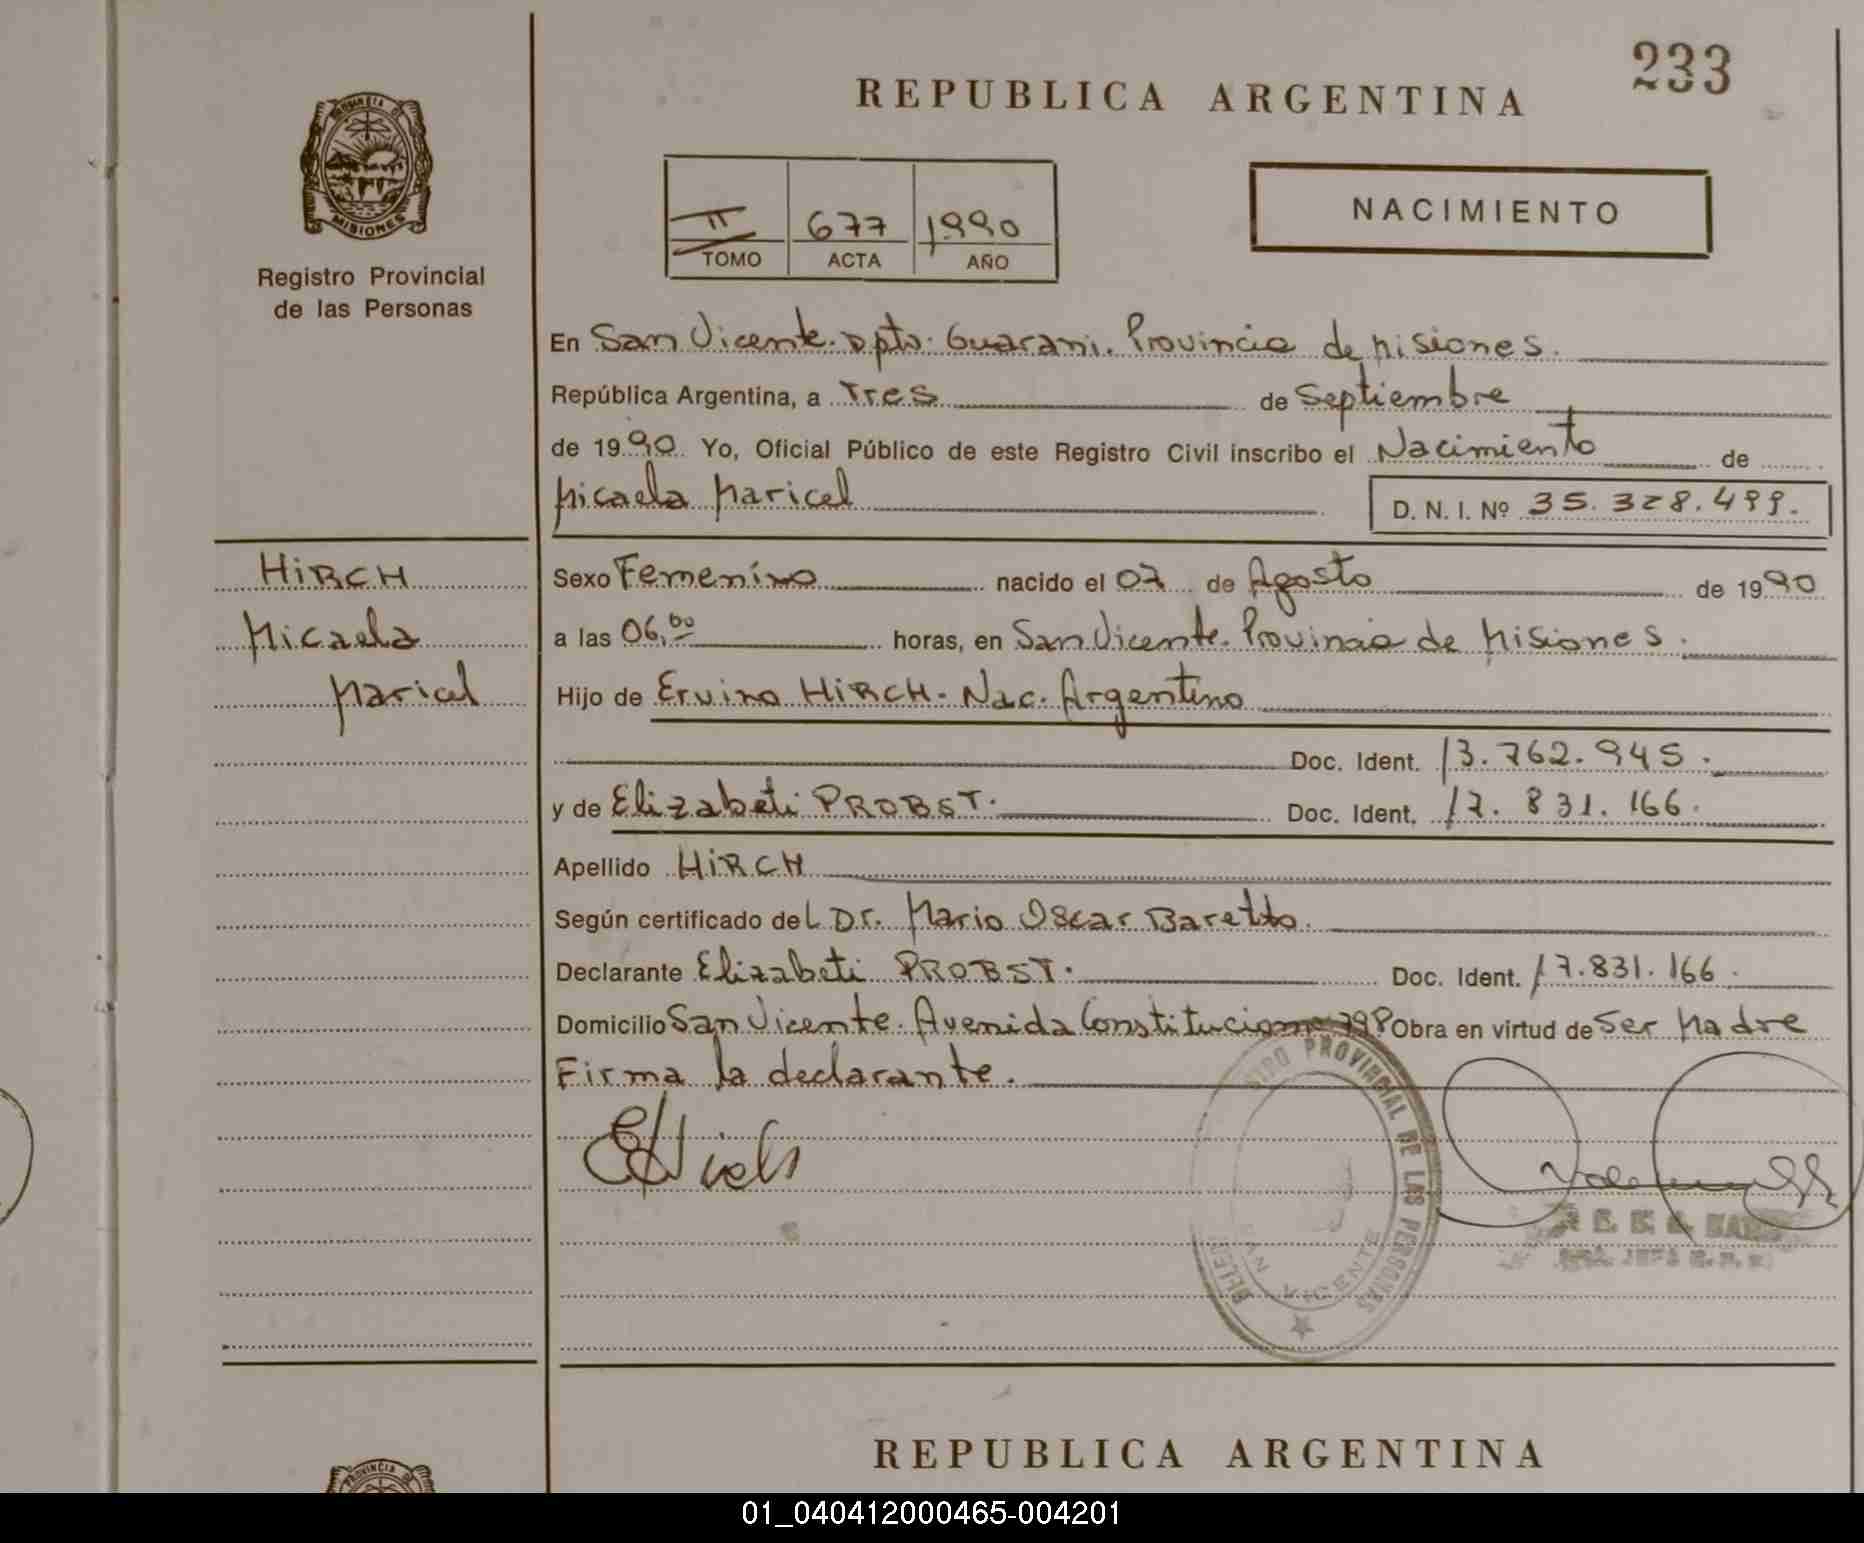 233
REPUBLICA ARGENTINA
PROVINCIA DE
MISIONES
Registro Provincial
de las Personas
II 677 1990
TOMO ACTA AÑO
NACIMIENTO
En San Vicente. Dpto. Guarani. Provincia de Misiones.
República Argentina, a Tres de Septiembre
de 1990 Yo, Oficial Público de este Registro Civil inscribo el Nacimiento de
Micaela Maricel
D. N. I. Nº 35.328.499.
HiRCH
Micaela
Maricel
Sexo Femenino nacido el 07 de Agosto de 1990
a las 06,00 horas, en San Vicente. Provincia de Misiones.
Hijo de Ervino HiRCH. Nac. Argentino
Doc. Ident. 13.762.945.
y de Elizabeti PROBST. Doc. Ident. 17.831.166.
Apellido HiRCH
Según certificado del Dr. Mario Oscar Baretto.
Declarante Elizabeti PROBST. Doc. Ident. 17.831.166.
Domicilio San Vicente. Avenida Constitucion 798 Obra en virtud de Ser Madre
Firma la declarante.
EHirch
PROVINCIAL DE LAS PERSONAS
SAN VICENTE
REPUBLICA ARGENTINA
PROVINCIA DE
01_040412000465-004201